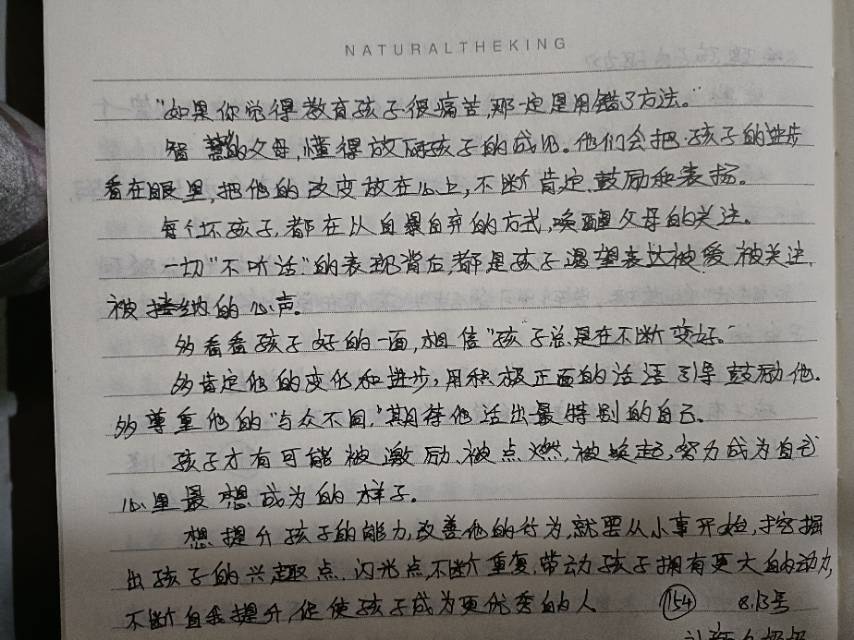 NATURALTHEKING
"如果你觉得教育孩子很痛苦,那一定是用错了方法。"
智慧的父母,懂得放大孩子的成功。他们会把孩子的进步
看在眼里,把他的改变放在心上,不断肯定、鼓励和表扬。
每个坏孩子,都在以自暴自弃的方式,唤醒父母的关注。
一切"不听话"的表现背后,都是孩子渴望表达被爱、被关注、
被接纳的心声。
多看看孩子好的一面,相信"孩子总是在不断变好。"
多肯定他的变化和进步,用积极正面的话语引导鼓励他。
多尊重他的"与众不同,"期待他活出最特别的自己。
孩子才有可能被激励、被点燃,被唤起,努力成为自己
心里最想成为的样子。
想提升孩子的能力,改善他的行为,就要从小事开始,挖掘
出孩子的兴趣点、闪光点,不断重复,带动孩子拥有更大的动力,
不断自我提升,促使孩子成为更优秀的人 154 8.13号